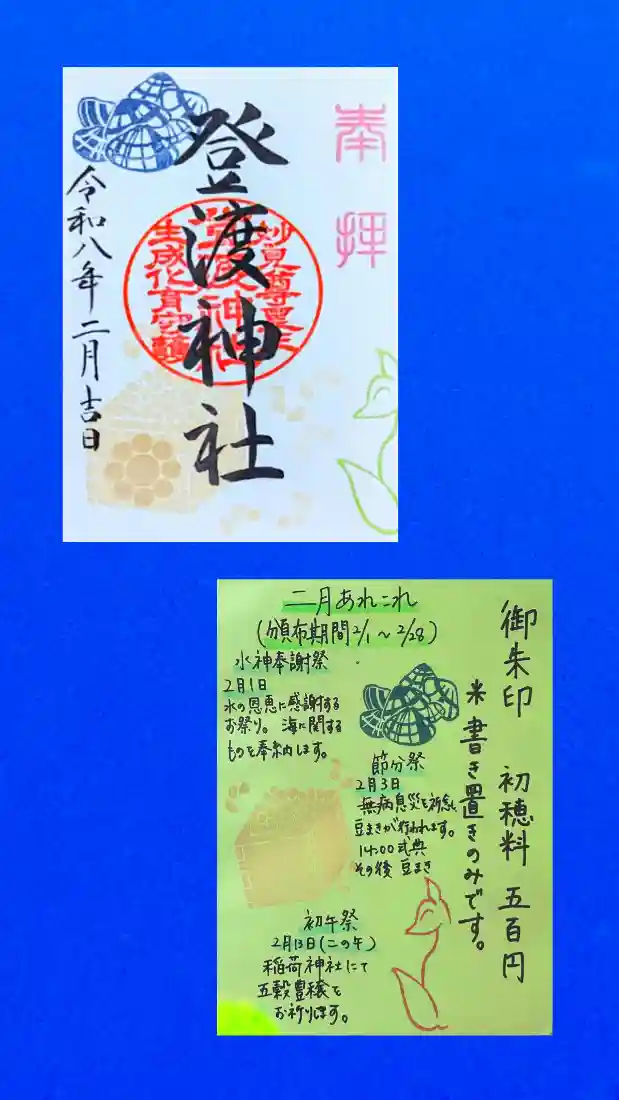 奉拝
登渡神社
妙見尊星王
登渡神社
生成化育守護
令和八年二月吉日
御朱印 初穂料 五百円
※書き置きのみです。
二月あれこれ
(頒布期間2/1~2/28)
水神奉謝祭
2月1日
水の恩恵に感謝する
お祭り。海に関する
ものを奉納します。
節分祭
2月3日
無病息災を祈念し
豆まきが行われます。
14:00式典
その後 豆まき
初午祭
2月13日(二の午)
稲荷神社にて
五穀豊穣を
お祈りします。